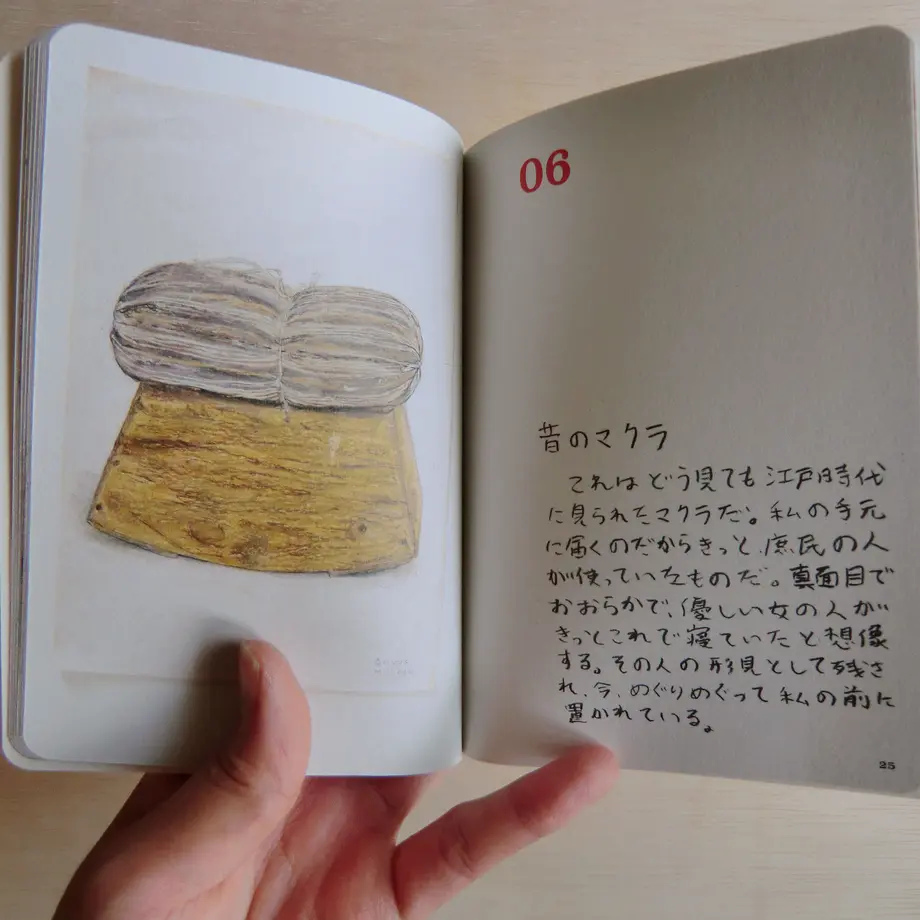 06
昔のマクラ
これはどう見ても江戸時代
に見られたマクラだ。私の手元
に届くのだからきっと、庶民の人
が使っていたものだ。真面目で
おおらかで、優しい女の人が
きっとこれで寝ていたと想像
する。その人の形見として残さ
れ、今、めぐりめぐって私の前に
置かれている。
25